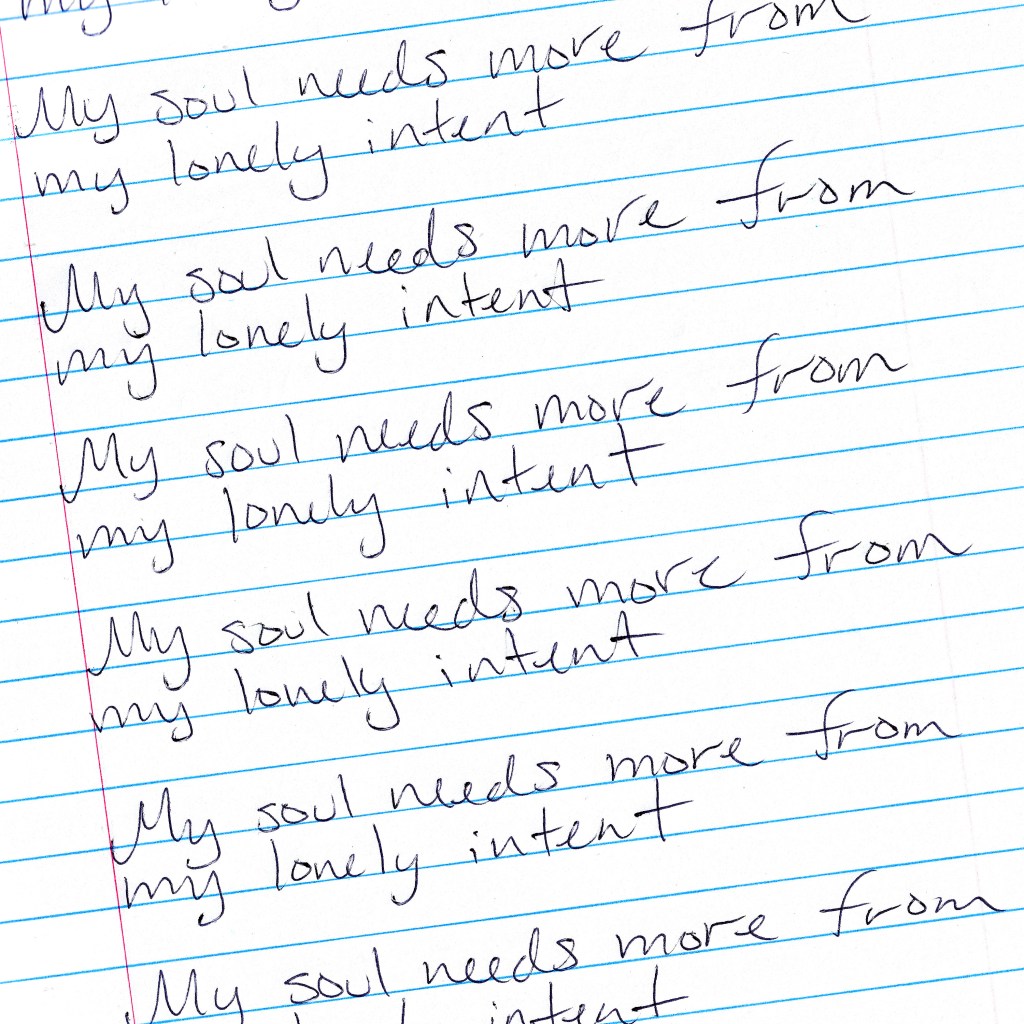 my
My soul needs more from
my lonely intent
My soul needs more from
my lonely intent
My soul needs more from
my lonely intent
My soul needs more from
my lonely intent
My soul needs more from
my lonely intent
My soul needs more from
intent